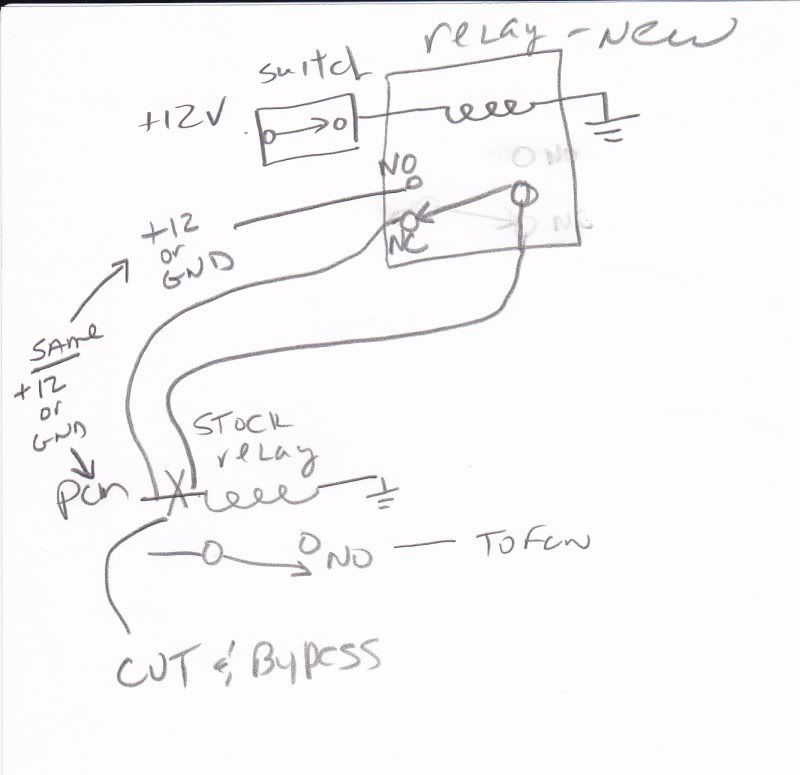 relay - New
switch
+12V
NO
NC
+12
or
GND
same
+12
or
GND
STOCK
relay
pcm
NO
TO Fan
CUT & Bypass